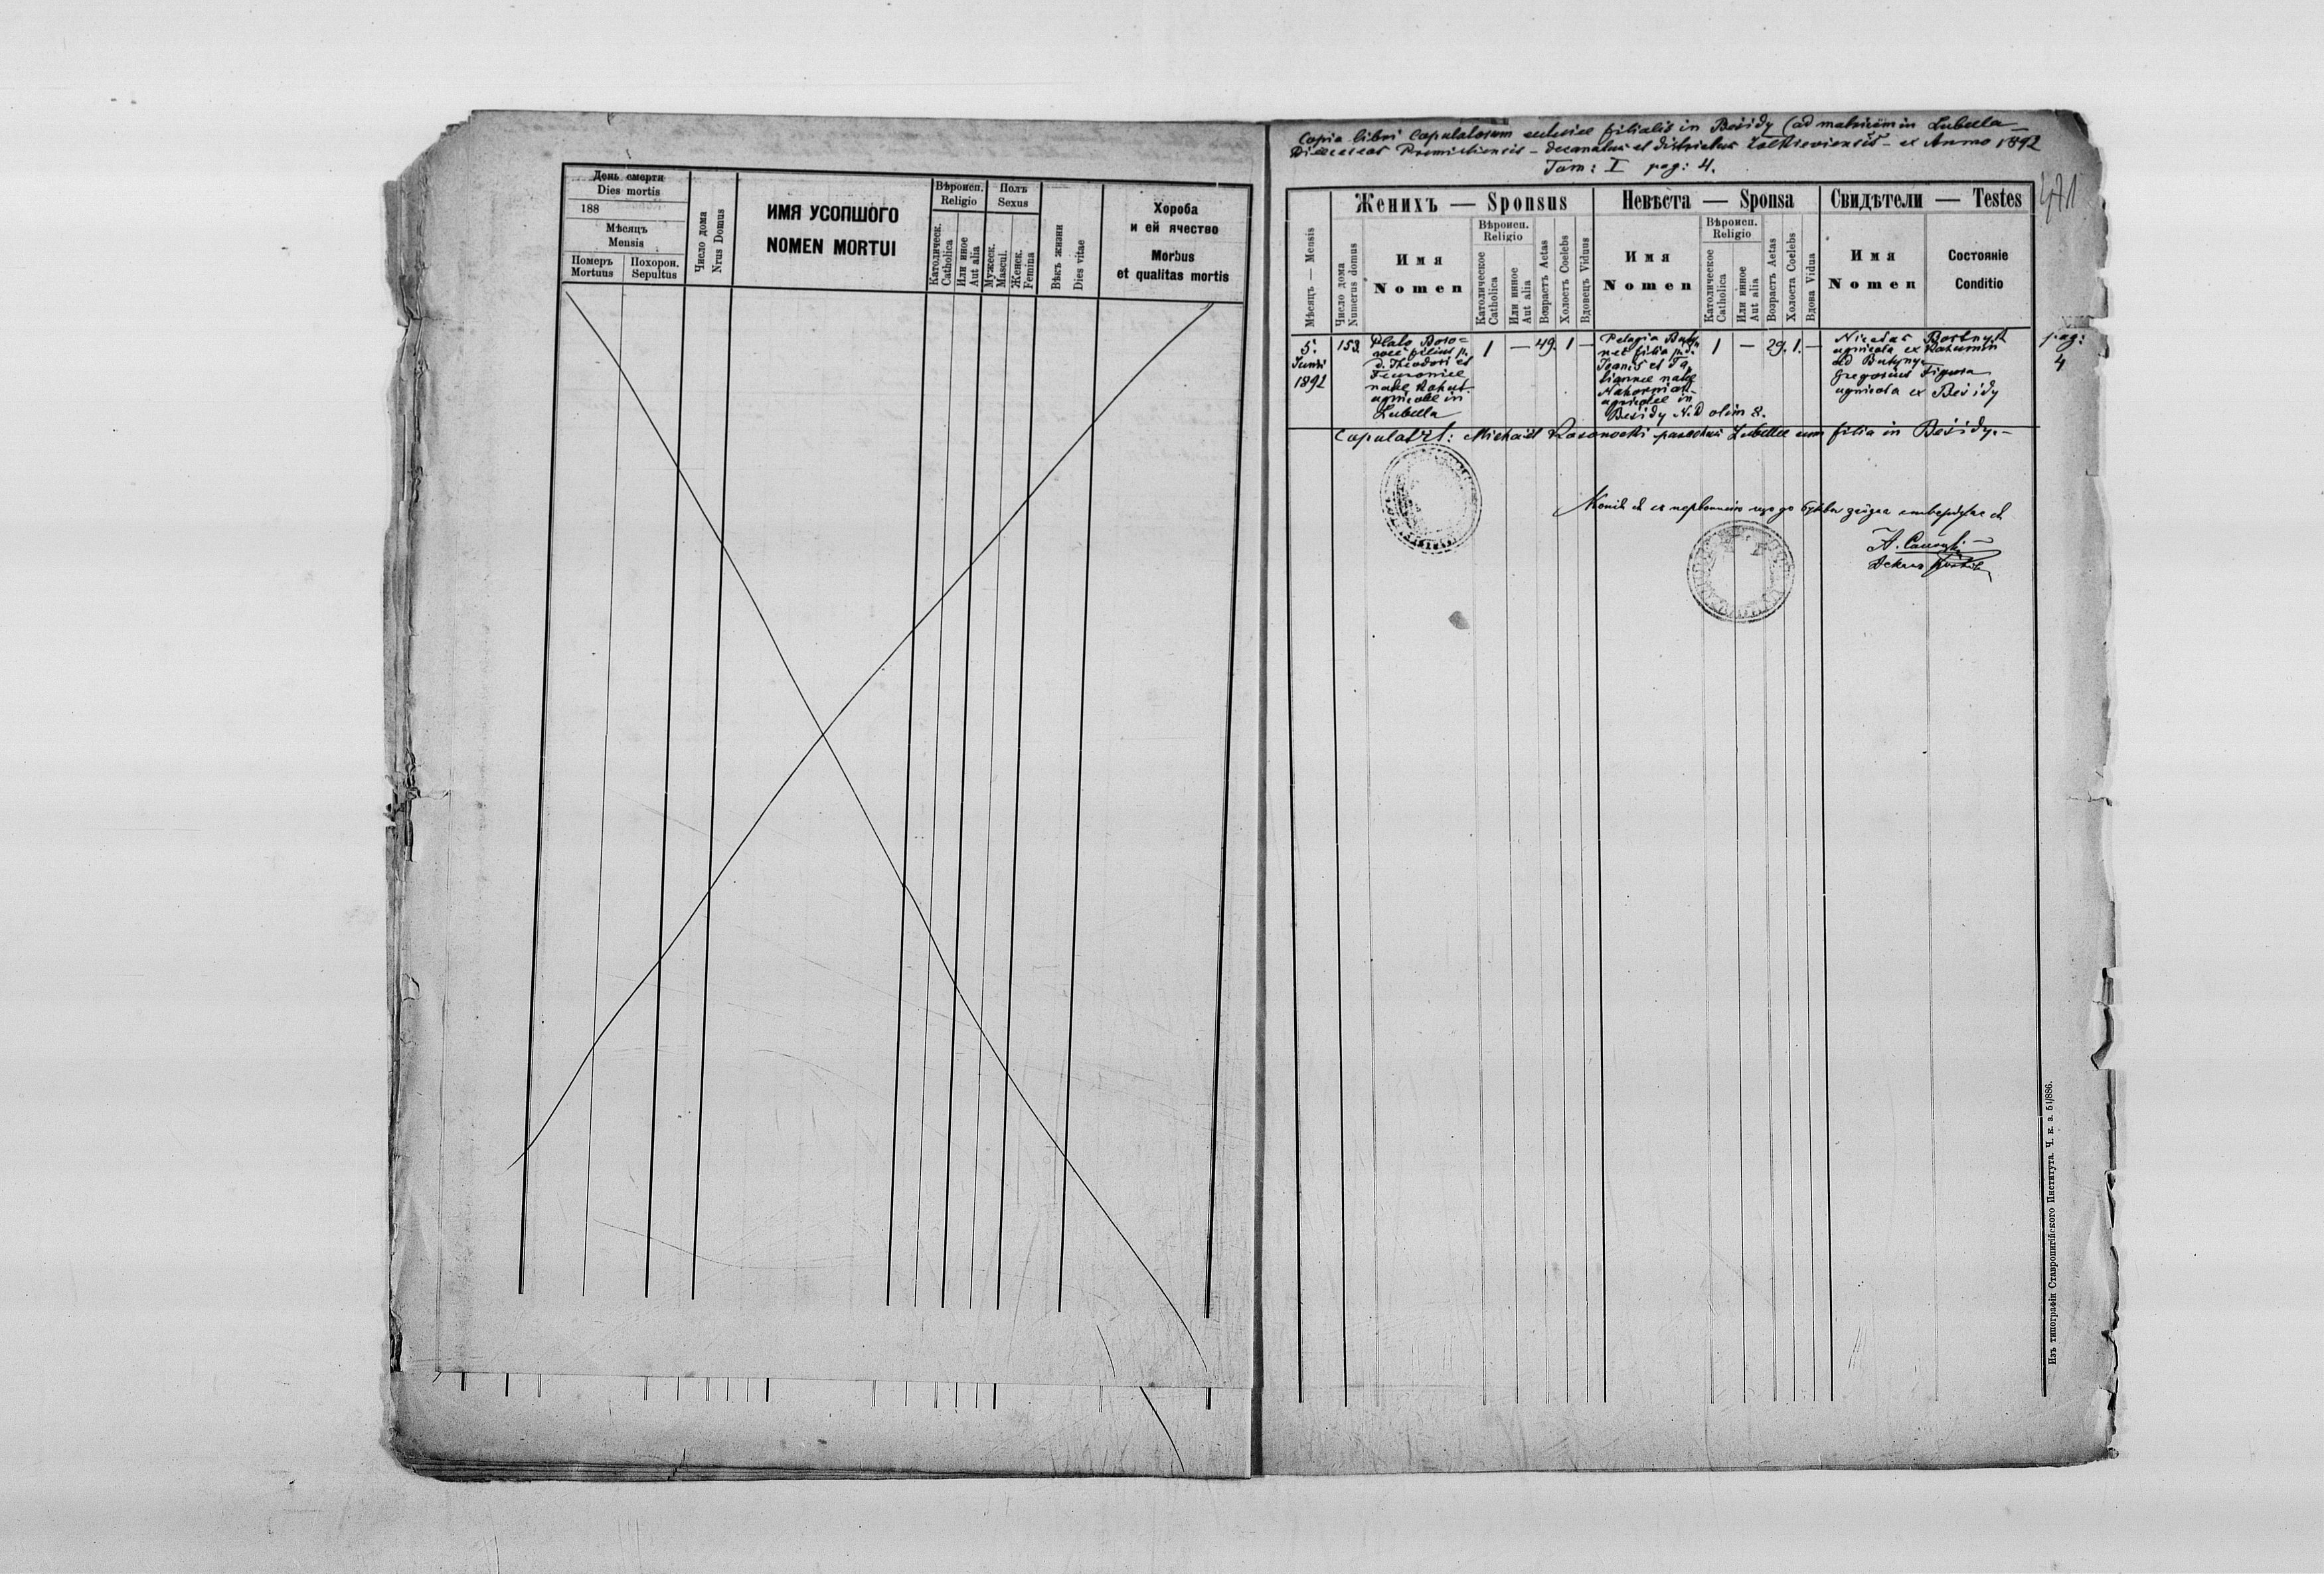 День смерти
Dies mortis
188
Мѣсяцъ
Mensis
Померъ
Mortuus
Похорон.
Sepultus
Число дома
Nrus Domus
ИМЯ УСОПШОГО
NOMEN MORTUI
Вѣроисп.
Religio
Католическ.
Catholica
Или нное
Aut alia
Полъ
Sexus
Мужеск.
Mascul.
Женск.
Femina
Вѣкъ жизни
Dies vitae
Хороба
и ей ячество
Morbus
et qualitas mortis
Copia libri Copulatorum ecclesiae filialis in Besidy (ad matricem in Lubella
Dioeceseos Premisliensis – decanatus et districtus Zolkieviensis – ex Anno 1892
Tom: I pag: 4.
471
Женихъ — Sponsus
Невѣста — Sponsa
Свидѣтели — Testes
Мѣсяцъ — Mensis
Число дома
Numerus domus
Имя
Nomen
Вѣроисп.
Religio
Католическое
Catholica
Или нное
Aut alia
Возрастъ Aetas
Холостъ Coelebs
Вдовецъ Viduus
Имя
Nomen
Вѣроисп.
Religio
Католическое
Catholica
Или нное
Aut alia
Возрастъ Aetas
Холоста Coelebs
Вдова Vidua
Имя
Nomen
Состояніе
Conditio
5.
Junii
1892
153.
Plato
filius p.
d. Theodori et
natae
agricolae in
Lubella
1 — 49. 1 —
Pelagia
filia p. d.
Joannis et
natae
agricolae in
Besidy N.D olim 8.
1 — 29. 1. —
Nicetas
agricola ex
ad Butyny.
Gregorius Figura
agricola ex Besidy
pag:
4
Copulavit: Michaël parochus Lubellae cum filia in Besidy.–
А.
Изъ типографіи Ставропигійского Института. Ч. к. з. 51/886.